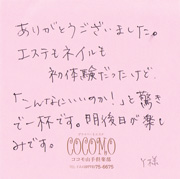 ありがとうございました。
エステもネイルも
初体験だったけど、
「こんなにいいのか!」と驚き
で一杯です。明後日が楽し
みです。
Y様
COCOMO
ココモ山手倶楽部
75-6675